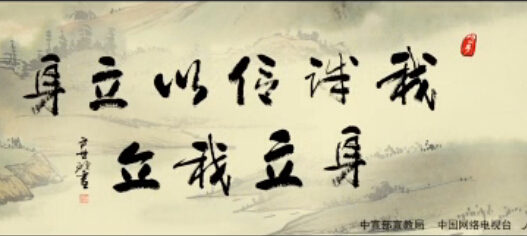 我诚信以立身
身立我立
中宣部宣教局 中国网络电视台